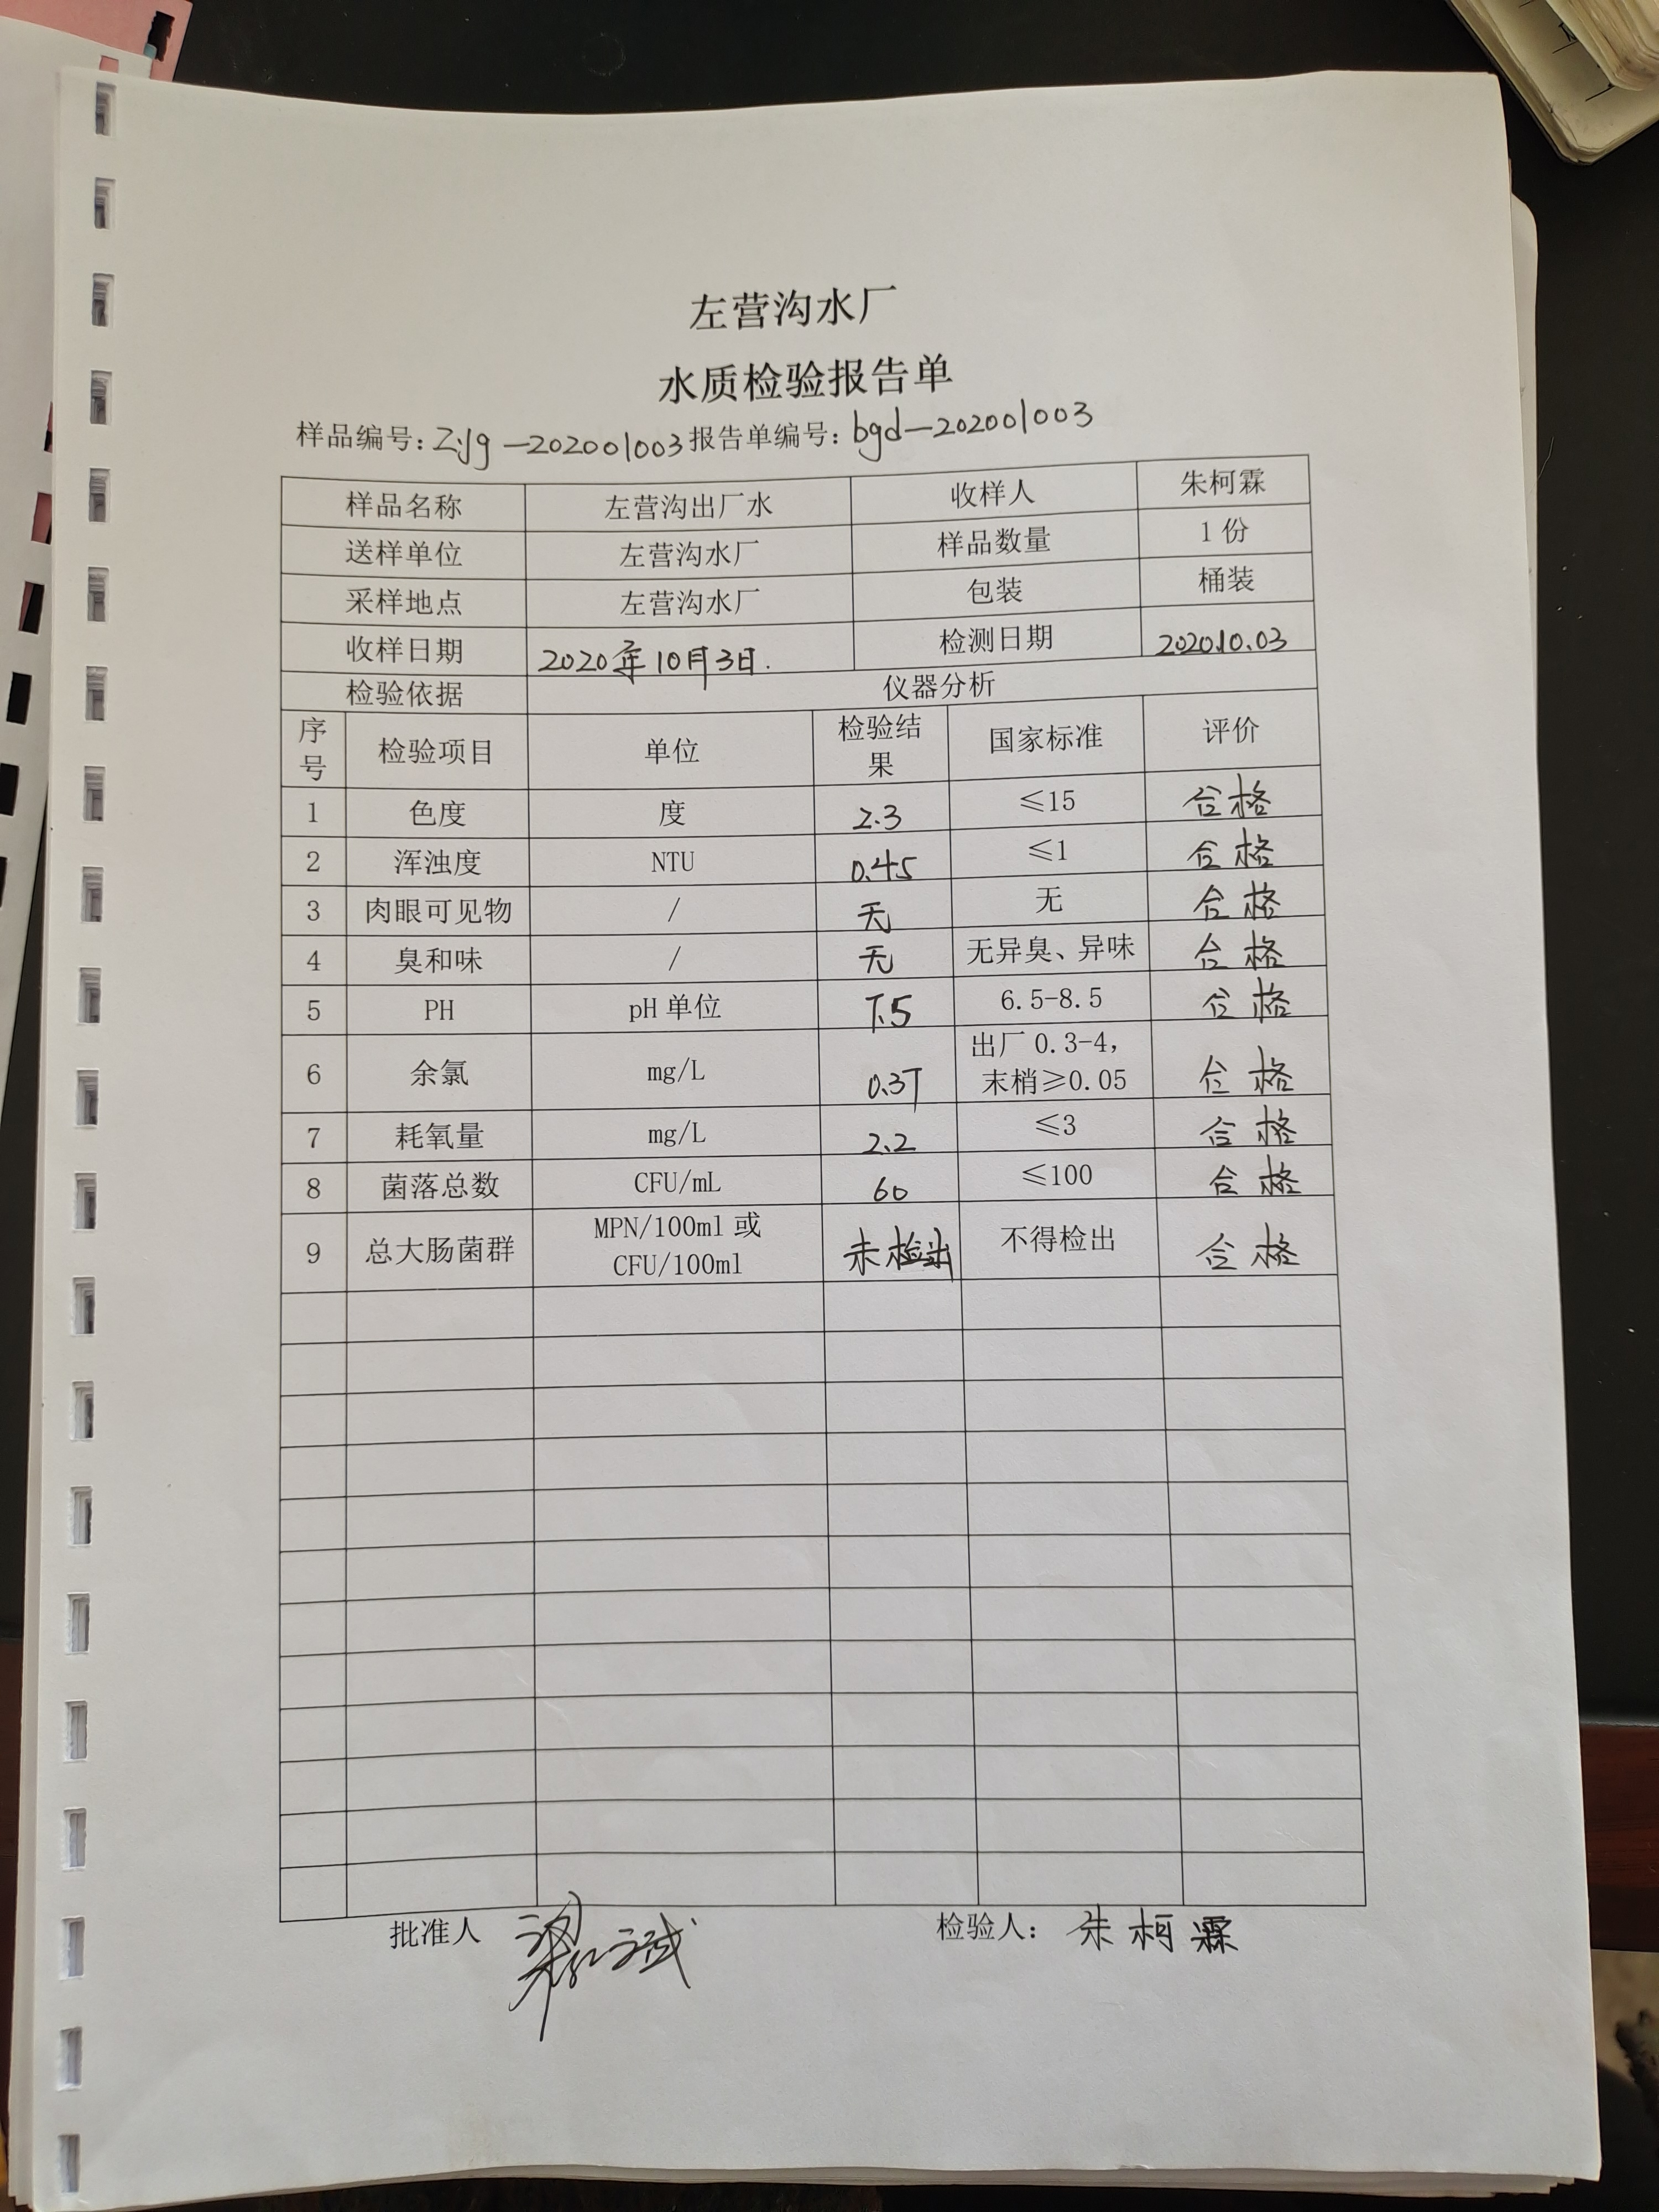 左营沟水厂
水质检验报告单
样品编号：Zyg-202001003 报告单编号：bgd-202001003
样品名称 左营沟出厂水 收样人 朱柯霖
送样单位 左营沟水厂 样品数量 1份
采样地点 左营沟水厂 包装 桶装
收样日期 2020年10月3日. 检测日期 2020.10.03
检验依据 仪器分析
序号 检验项目 单位 检验结果 国家标准 评价
1 色度 度 2.3 ≤15 合格
2 浑浊度 NTU 0.45 ≤1 合格
3 肉眼可见物 / 无 无 合格
4 臭和味 / 无 无异臭、异味 合格
5 PH pH单位 7.5 6.5-8.5 合格
6 余氯 mg/L 0.37 出厂0.3-4，末梢≥0.05 合格
7 耗氧量 mg/L 2.2 ≤3 合格
8 菌落总数 CFU/mL 60 ≤100 合格
9 总大肠菌群 MPN/100ml或CFU/100ml 未检出 不得检出 合格
批准人 检验人：朱柯霖